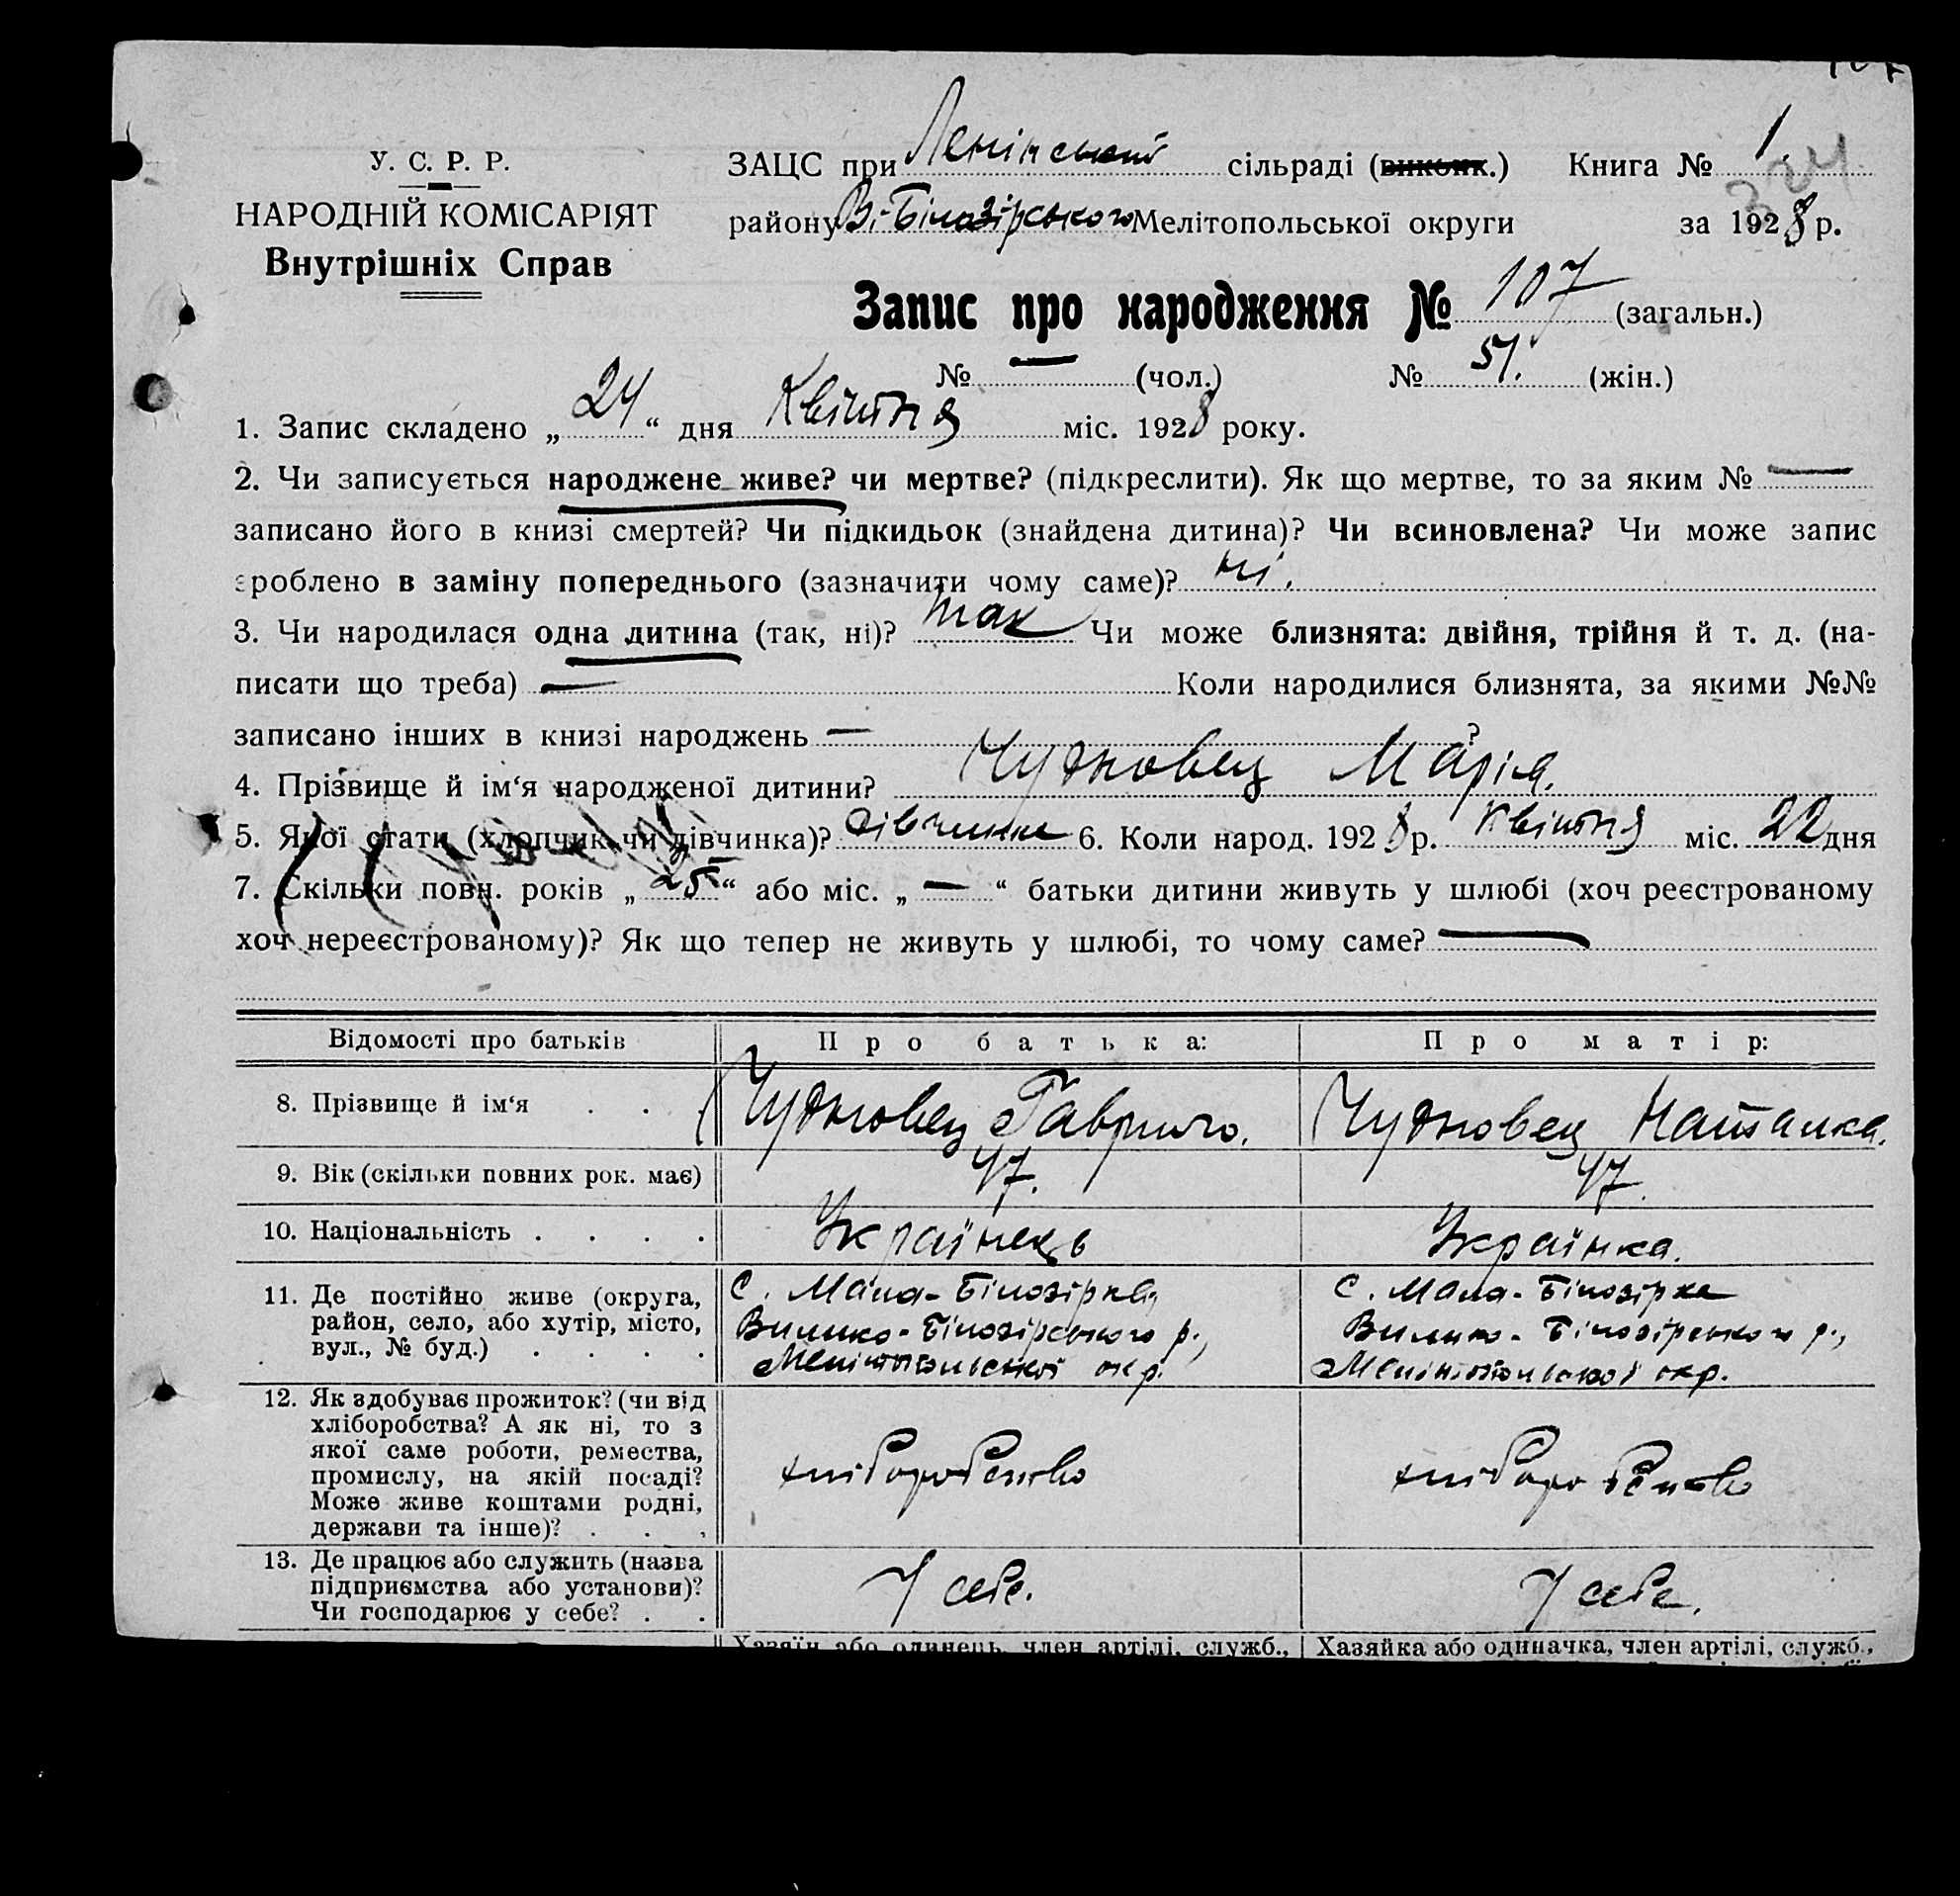 У. С. Р. Р.
НАРОДНІЙ КОМІСАРІЯТ
Внутрішніх Справ
ЗАЦС при Ленінський сільраді (виконк.) Книга № 1.
324
району В.-Білозірського Мелітопольської округи за 1928 р.
Запис про народження № 107 (загальн.)
№ — (чол.) № 51. (жін.)
1. Запис складено „24“ дня Квітня міс. 1928 року.
2. Чи записується народжене живе? чи мертве? (підкреслити). Як що мертве, то за яким № —
записано його в книзі смертей? Чи підкидьок (знайдена дитина)? Чи всиновлена? Чи може запис
зроблено в заміну попереднього (зазначити чому саме)? ні.
3. Чи народилася одна дитина (так, ні)? так Чи може близнята: двійня, трійня й т. д. (на-
писати що треба) — Коли народилися близнята, за якими №№
записано інших в книзі народжень — ?
4. Прізвище й ім‘я народженої дитини? Чудновец Марія.
5. Якої стати (хлопчик чи дівчинка)? дівчинка 6. Коли народ. 1928 р. Квітня міс. 22 дня
7. Скільки повн. років „25“ або міс. „—“ батьки дитини живуть у шлюбі (хоч реєстрованому
хоч нереєстрованому)? Як що тепер не живуть у шлюбі, то чому саме? —
Відомості про батьків Про батька: Про матір:
8. Прізвище й ім‘я . . . Чудновец Гаврило. Чудновец Наталка.
9. Вік (скільки повних рок. має) 47. 47.
10. Національність . . . . Українець Українка.
11. Де постійно живе (округа, район, село, або хутір, місто, вул., № буд.) . . . .
С. Мала-Білозірка,
Велико-Білозірського р.,
Мелітопольської окр.
С. Мала-Білозірка
Велико-Білозірського р.,
Мелітопольської окр.
12. Як здобуває прожиток? (чи від
хліборобства? А як ні, то з
якої саме роботи, ремества,
промислу, на якій посаді?
Може живе коштами родні,
держави та інше)? . . .
хліборобство хліборобство
13. Де працює або служить (назва
підприємства або установи)?
Чи господарює у себе? . .
У себе. У себе.
Хазяїн або одинець, член артілі, служб., Хазяйка або одиначка, член артілі, служб.,